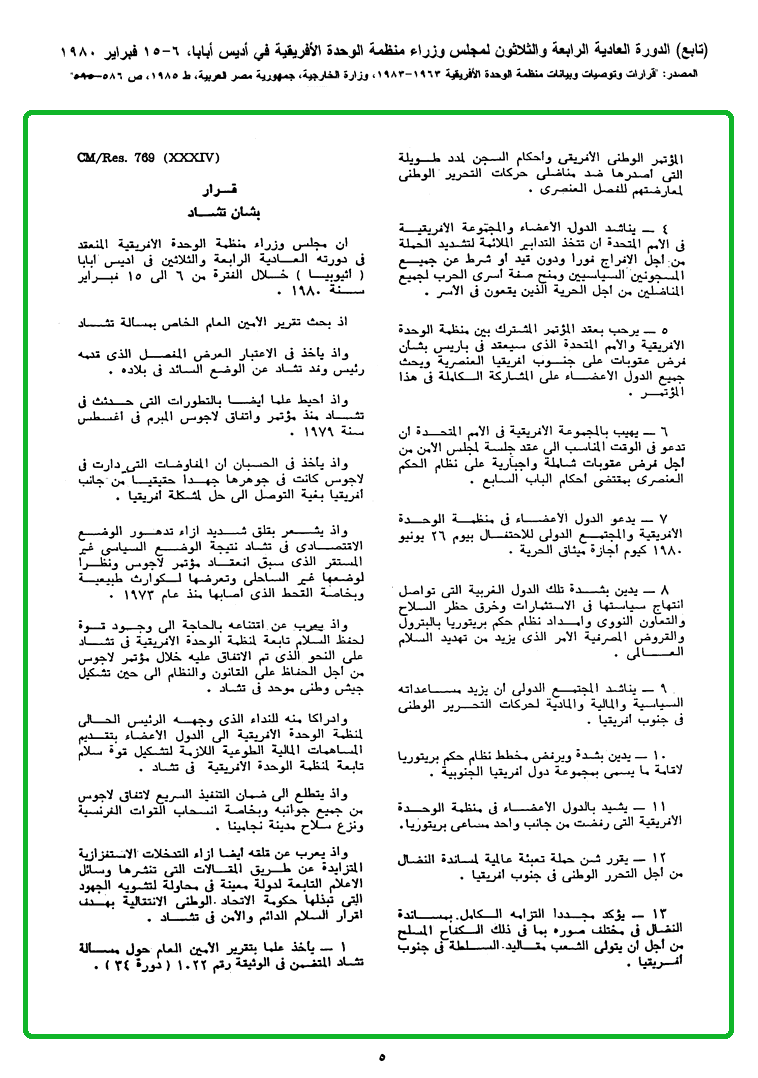 (تابع) الدورة العادية الرابعة والثلاثون لمجلس وزراء منظمة الوحدة الأفريقية في أديس أبابا، ٦-١٥ فبراير ١٩٨٠
المصدر: "قرارات وتوصيات وبيانات منظمة الوحدة الأفريقية ١٩٦٣-١٩٨٣، وزارة الخارجية، جمهورية مصر العربية، ط ١٩٨٥، ص ٥٨٦-٥٩٥"
المؤتمر الوطنى الأفريقى وأحكام السجن لمدد طويلة
التى أصدرها ضد مناضلى حركات التحرير الوطنى
لمعارضتهم للفصل العنصرى .
٤ — يناشد الدول الأعضاء والمجموعة الأفريقية
فى الأمم المتحدة أن تتخذ التدابير الملائمة لتشديد الحملة
من أجل الافراج فورا ودون قيد أو شرط عن جميع
المسجونين السياسيين ومنح صفة أسرى الحرب لجميع
المناضلين من أجل الحرية الذين يقعون فى الأسر .
٥ — يرحب بعقد المؤتمر المشترك بين منظمة الوحدة
الأفريقية والأمم المتحدة الذى سيعقد فى باريس بشأن
فرض عقوبات على جنوب افريقيا العنصرية ويحث
جميع الدول الأعضاء على المشاركة الكاملة فى هذا
المؤتمر .
٦ — يهيب بالمجموعة الأفريقية فى الأمم المتحدة أن
تدعو فى الوقت المناسب الى عقد جلسة لمجلس الأمن من
أجل فرض عقوبات شاملة واجبارية على نظام الحكم
العنصرى بمقتضى أحكام الباب السابع .
٧ — يدعو الدول الأعضاء فى منظمة الوحدة
الأفريقية والمجتمع الدولى للاحتفال بيوم ٢٦ يونيو
١٩٨٠ كيوم أجازة ميثاق الحرية .
٨ — يدين بشدة تلك الدول الغربية التى تواصل
انتهاج سياستها فى الاستثمارات وخرق حظر السلاح
والتعاون النووى وامداد نظام حكم بريتوريا بالبترول
والقروض المصرفية الأمر الذى يزيد من تهديد السلام
العالمى .
٩ — يناشد المجتمع الدولى أن يزيد مساعداته
السياسية والمالية والمادية لحركات التحرير الوطنى
فى جنوب أفريقيا .
١٠ — يدين بشدة ويرفض مخطط نظام حكم بريتوريا
لاقامة ما يسمى بمجموعة دول أفريقيا الجنوبية .
١١ — يشيد بالدول الأعضاء فى منظمة الوحدة
الأفريقية التى رفضت من جانب واحد مساعى بريتوريا.
١٢ — يقرر شن حملة تعبئة عالمية لمساندة النضال
من أجل التحرر الوطنى فى جنوب أفريقيا .
١٣ — يؤكد مجددا التزامه الكامل بمساندة
النضال فى مختلف صوره بما فى ذلك الكفاح المسلح
من أجل أن يتولى الشعب مقاليد السلطة فى جنوب
أفريقيا .
CM/Res. 769 (XXXIV)
قرار
بشأن تشاد
ان مجلس وزراء منظمة الوحدة الأفريقية المنعقد
فى دورته العادية الرابعة والثلاثين فى أديس أبابا
( أثيوبيا ) خلال الفترة من ٦ الى ١٥ فبراير
سنة ١٩٨٠ .
اذ بحث تقرير الأمين العام الخاص بمسألة تشاد
واذ يأخذ فى الاعتبار العرض المفصل الذى قدمه
رئيس وفد تشاد عن الوضع السائد فى بلاده .
واذ أحيط علما أيضا بالتطورات التى حدثت فى
تشاد منذ مؤتمر واتفاق لاجوس المبرم فى أغسطس
سنة ١٩٧٩ .
واذ يأخذ فى الحسبان أن المفاوضات التى دارت فى
لاجوس كانت فى جوهرها جهدا حقيقيا من جانب
أفريقيا بغية التوصل الى حل لمشكلة أفريقيا .
واذ يشعر بقلق شديد ازاء تدهور الوضع
الاقتصادى فى تشاد نتيجة الوضع السياسى غير
المستقر الذى سبق انعقاد مؤتمر لاجوس ونظرا
لوضعها غير الساحلى وتعرضها لكوارث طبيعية
وبخاصة القحط الذى أصابها منذ عام ١٩٧٣ .
واذ يعرب عن اقتناعه بالحاجة الى وجود قوة
لحفظ السلام تابعة لمنظمة الوحدة الأفريقية فى تشاد
على النحو الذى تم الاتفاق عليه خلال مؤتمر لاجوس
من أجل الحفاظ على القانون والنظام الى حين تشكيل
جيش وطنى موحد فى تشاد .
وادراكا منه للنداء الذى وجهه الرئيس الحالى
لمنظمة الوحدة الأفريقية الى الدول الأعضاء بتقديم
المساهمات المالية الطوعية اللازمة لتشكيل قوة سلام
تابعة لمنظمة الوحدة الأفريقية فى تشاد .
واذ يتطلع الى ضمان التنفيذ السريع لاتفاق لاجوس
من جميع جوانبه وبخاصة انسحاب القوات الفرنسية
ونزع سلاح مدينة نجامينا .
واذ يعرب عن قلقه أيضا ازاء التدخلات الاستفزازية
المتزايدة عن طريق المقالات التى تنشرها وسائل
الاعلام التابعة لدولة معينة فى محاولة لتشويه الجهود
التى تبذلها حكومة الاتحاد الوطنى الانتقالية بهدف
اقرار السلام الدائم والأمن فى تشاد .
١ — يأخذ علما بتقرير الأمين العام حول مسألة
تشاد المتضمن فى الوثيقة رقم ١٠٢٢ ( دورة ٣٤ ) .
٥